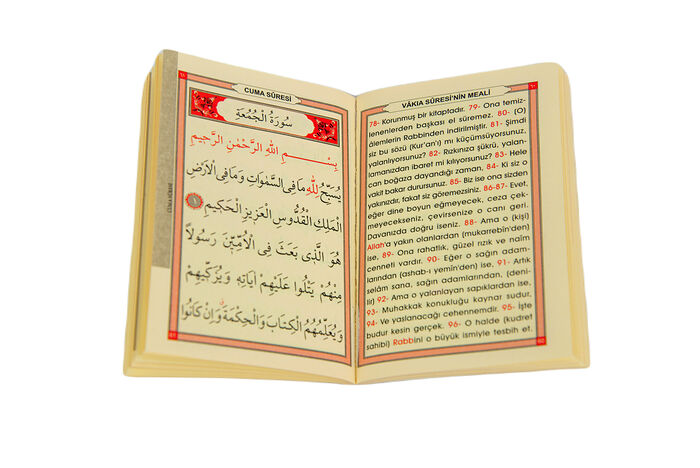 CUMA SÛRESİ
سُورَةُ الْجُمُعَةِ
بِسْمِ اللّٰهِ الرَّحْمٰنِ الرَّحِيمِ
يُسَبِّحُ لِلّٰهِ مَا فِى السَّمٰوَاتِ وَمَا فِى الْاَرْضِ
الْمَلِكِ الْقُدُّوسِ الْعَزِيزِ الْحَكِيمِ ١
هُوَ الَّذٖى بَعَثَ فِى الْاُمِّيّٖنَ رَسُولاً
مِنْهُمْ يَتْلُوا عَلَيْهِمْ اٰيَاتِهٖ وَيُزَكّٖيهِمْ
وَيُعَلِّمُهُمُ الْكِتَابَ وَالْحِكْمَةَ وَاِنْ كَانُوا
VÂKIA SÛRESİ'NİN MEALİ
78- Korunmuş bir kitaptadır. 79- Ona temiz-
lenenlerden başkası el süremez. 80- (O)
âlemlerin Rabbinden indirilmiştir. 81- Şimdi
siz bu sözü (Kur'an'ı) mı küçümsüyorsunuz,
yalanlıyorsunuz? 82- Rızkınıza şükrü, yalan-
lamanızdan ibaret mi kılıyorsunuz? 83- Hele
can boğaza dayandığı zaman, 84- Ki siz o
vakit bakar durursunuz. 85- Biz ise ona sizden
yakınızdır, fakat siz göremesiniz. 86-87- Evet,
eğer dine boyun eğmeyecek, ceza çek-
meyecekseniz, çevirsenize o canı geri.
Davanızda doğru iseniz. 88- Ama o (kişi)
Allah'a yakın olanlardan (mukarrebin'den)
ise, 89- Ona rahatlık, güzel rızık ve naîm
cenneti vardır. 90- Eğer o sağın adam-
larından (ashab-ı yemin'den) ise, 91- Artık
selâm sana, sağın adamlarından, (deni-
lir) 92- Ama o yalanlayan sapıklardan ise,
93- Muhakkak konukluğu kaynar sudur.
94- Ve yaslanacağı cehennemdir. 95- İşte
budur kesin gerçek. 96- O halde (kudret
sahibi) Rabbini o büyük ismiyle tesbih et.
60